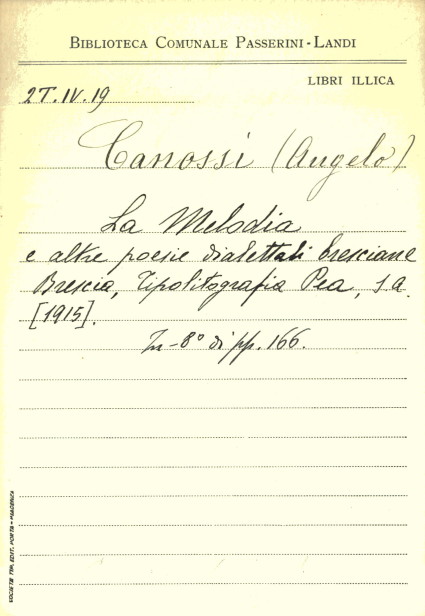 BIBLIOTECA COMUNALE PASSERINI-LANDI
LIBRI ILLICA
2T.IV.19
Canossi (Angelo)
La Melodia
e altre poesie dialettali bresciane
Brescia, Tipolitografia Pea, s.a.
[1915].
In-8° di pp. 166.